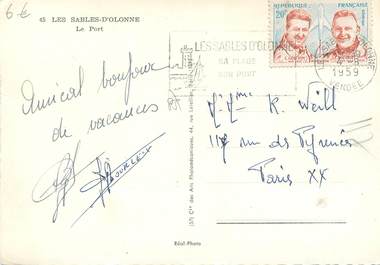 6 €
45 LES SABLES-D'OLONNE
Le Port
LES SABLES D'OLONNE
SA PLAGE
SON PORT
RÉPUBLIQUE FRANÇAISE
20F
1959
VENDÉE
Amical bonjour
de vacances
M. Mme R. Weill
117 rue des Pyrénées
Paris XX
(57) Cie des Arts Photomécaniques, 44, rue
Réal-Photo